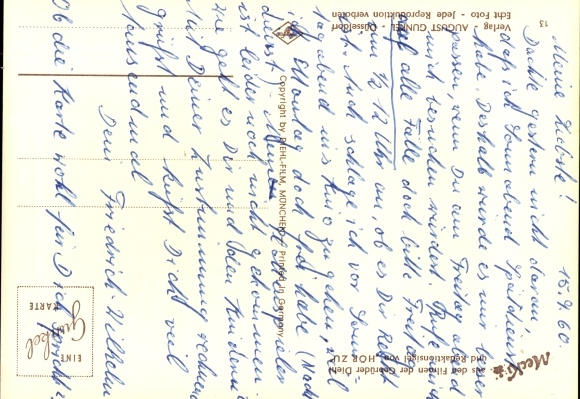 15.9.60.
Meine Liebste!
Dachte gestern nicht daran,
daß ich Sonnabend Spätdienst
habe. Deshalb würde es mir besser
passen, wenn Du am Freitag abend
mich besuchen würdest. Rufe mich
auf alle Fälle doch bitte Freitag
um ½ 12 Uhr an, ob es Dir recht
ist. Auch schlage ich vor Sonn-
tag abend ins Kino zu gehen, weil
ich Montag doch frei habe (Nacht-
dienst).
ist leider noch nicht gekommen
Wie geht es Dir und
Mit Deiner Zustimmung rechnend
grüßt und küßt Dich viel
tausendmal
Dein Friedrich-Wilhelm
Ob die Karte wohl für Dich
13
Verlag - AUGUST GUNKEL - Düsseldorf
Echt Foto - Jede Reproduktion verboten
Copyright by DIEHL-FILM, MÜNCHEN - Printed in Germany
Mecki
aus den Filmen der Gebrüder Diehl
und Redaktionsigel von HÖR ZU
EINE
Gunkel
KARTE